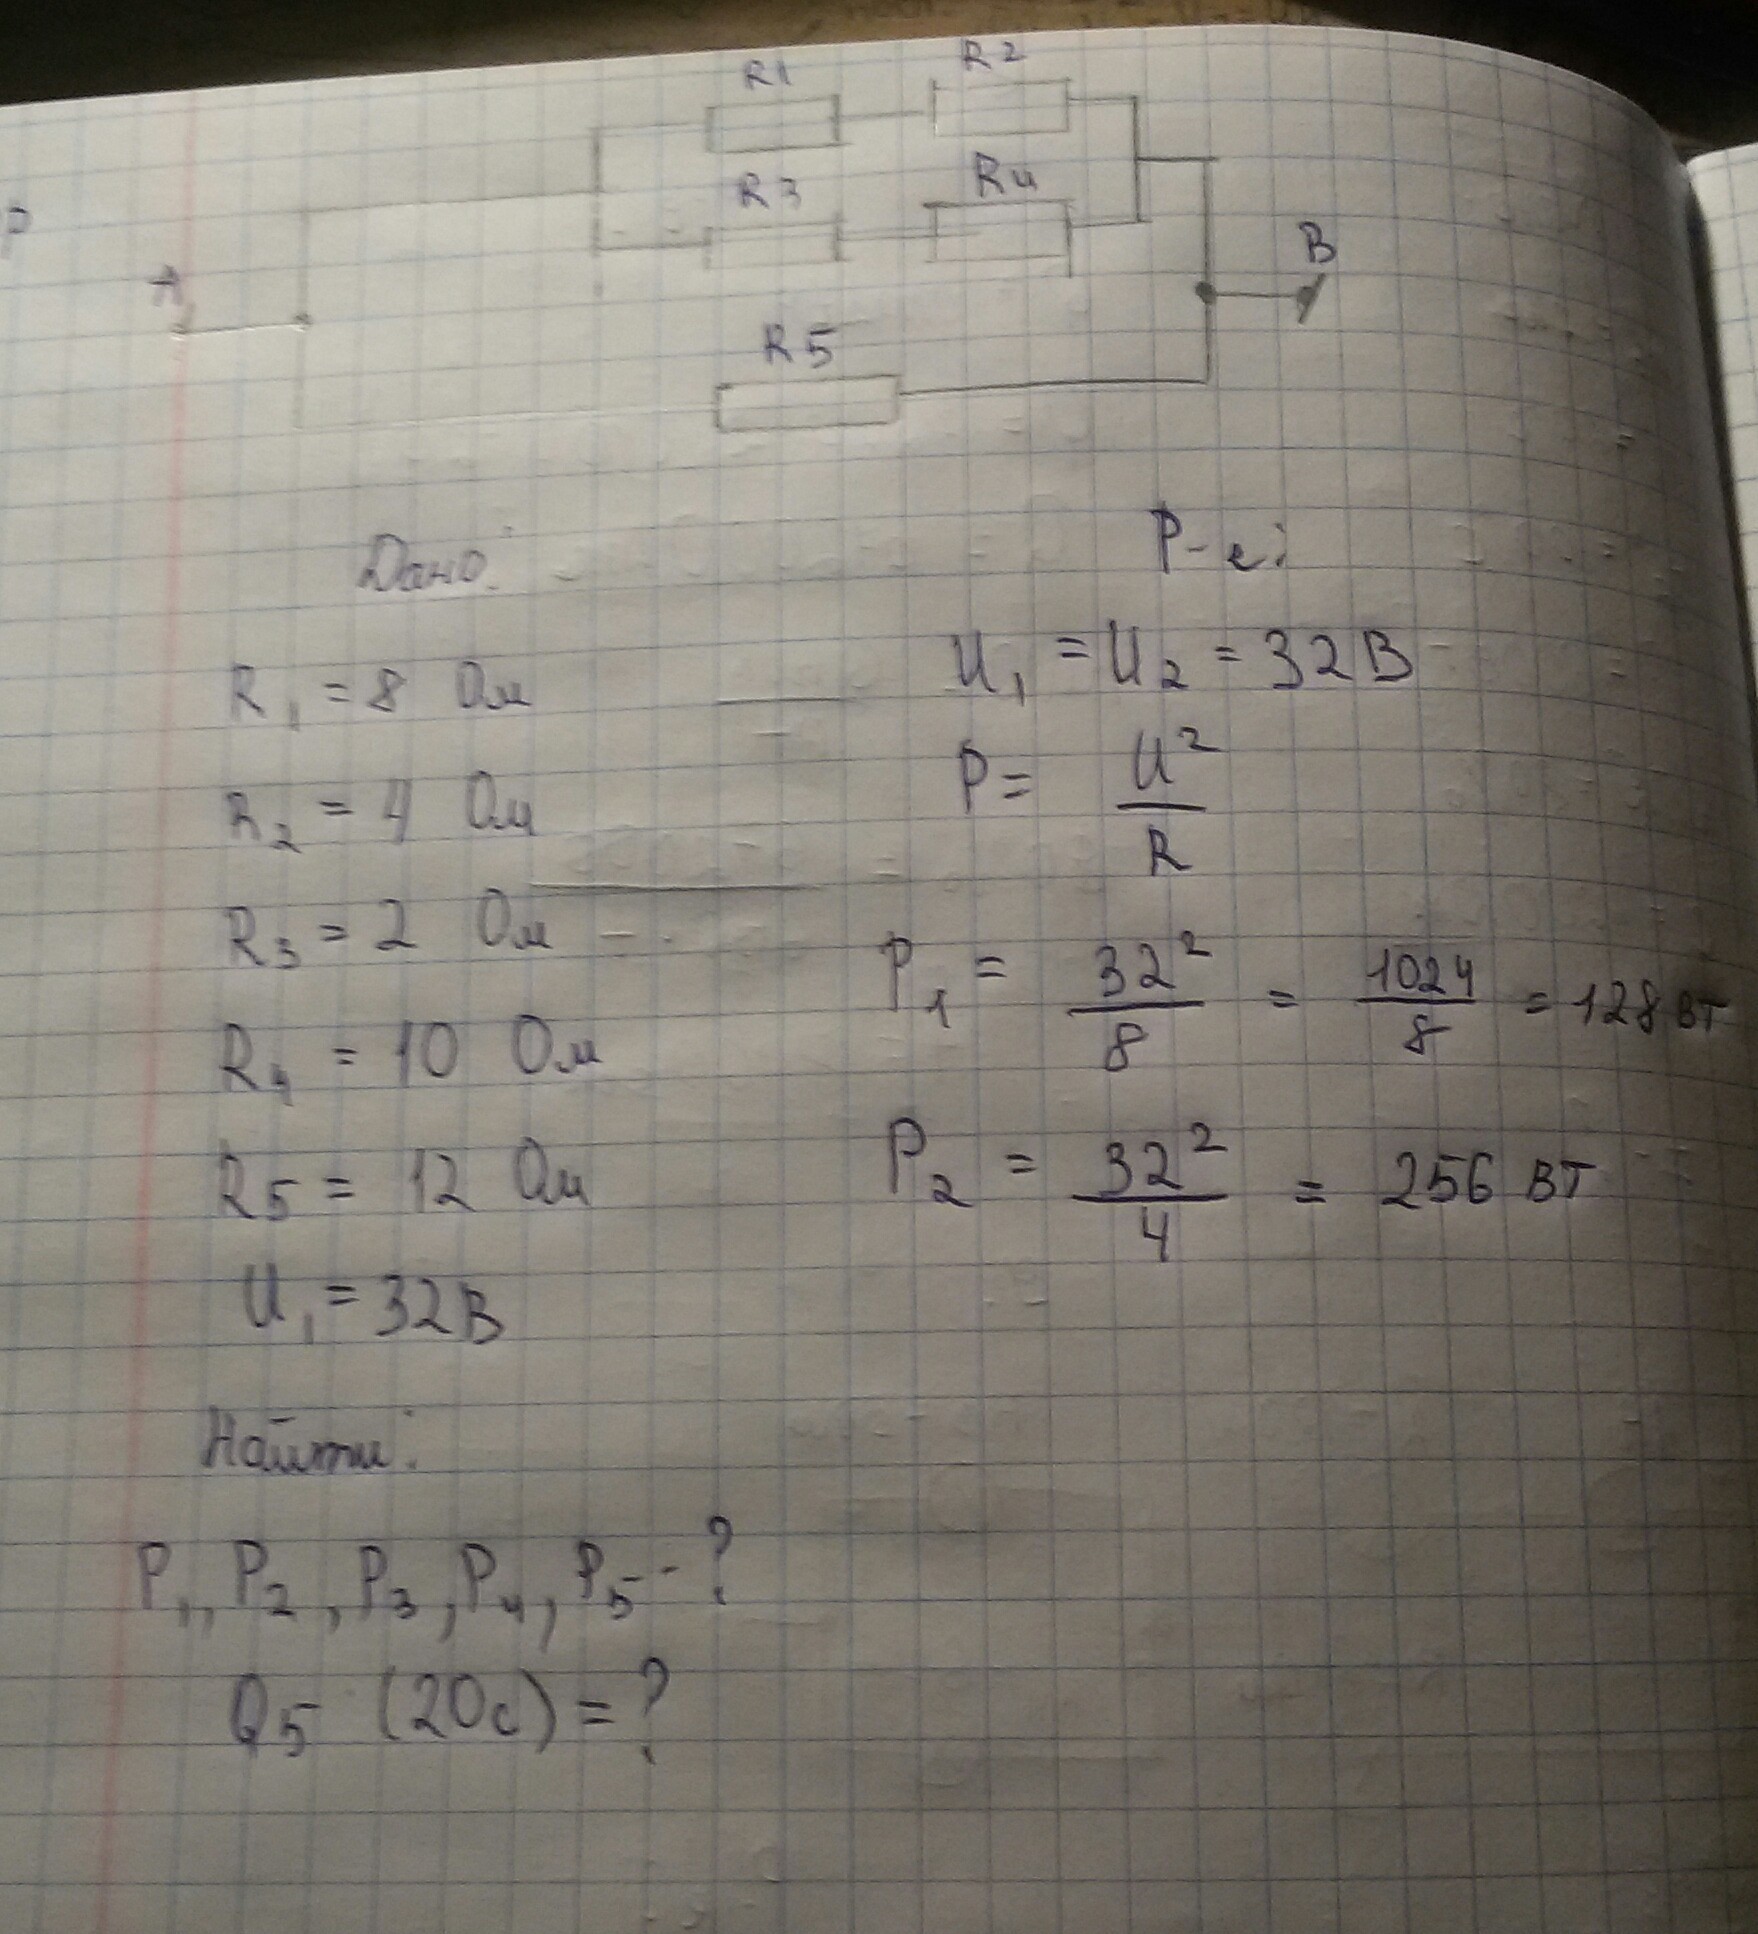 R1 R2
R3 R4
A B
R5
Дано:
R1 = 8 Ом
R2 = 4 Ом
R3 = 2 Ом
R4 = 10 Ом
R5 = 12 Ом
U1 = 32В
Найти:
P1, P2, P3, P4, P5 - ?
Q5 (20с) = ?
Р-е:
U1 = U2 = 32В
P = U²/R
P1 = 32²/8 = 1024/8 = 128 Вт
P2 = 32²/4 = 256 Вт